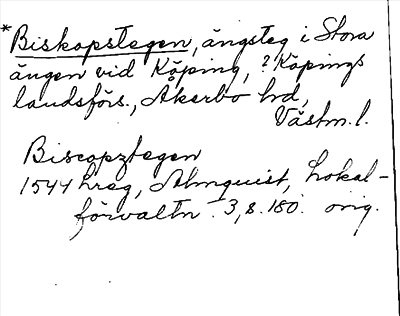 *Biskopstegen, ängsteg i Stora
ängen vid Köping, ? Köpings
landsförs., Åkerbo hd,
Västm. l.
Biscopztegen
1544 hreg, Almquist, Lokal-
förvaltn. 3, s. 180. orig.